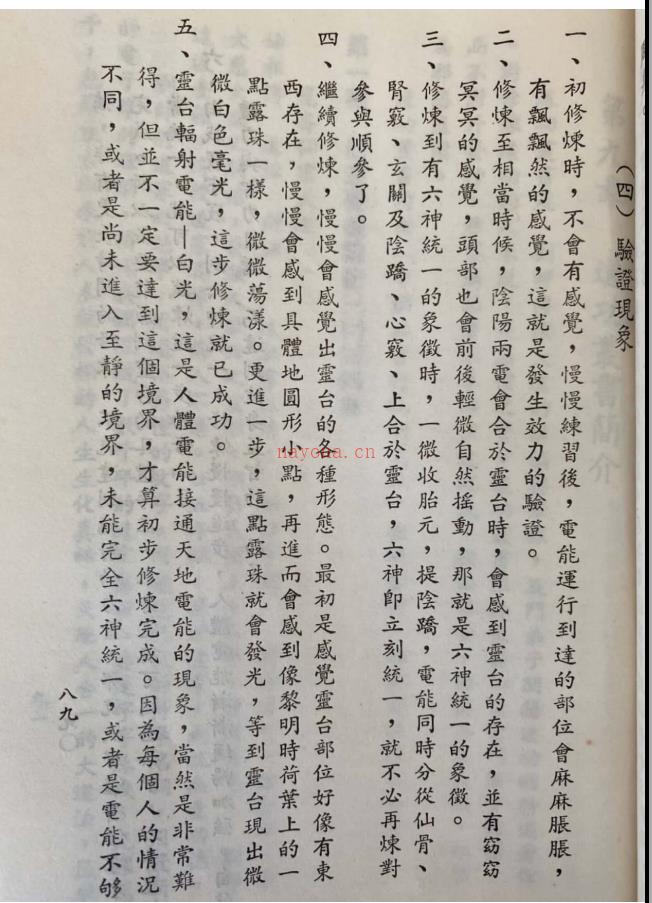 （四）驗證現象
一、初修煉時，不會有感覺，慢慢練習後，電能運行到達的部位會麻麻脹脹，
有飄飄然的感覺，這就是發生效力的驗證。
二、修煉至相當時候，陰陽兩電會合於靈台時，會感到靈台的存在，並有窈窈
冥冥的感覺，頭部也會前後輕微自然搖動，那就是六神統一的象徵。
三、修煉到有六神統一的象徵時，一微收胎元，提陰蹻，電能同時分從仙骨、
腎竅、玄關及陰蹻、心竅、上合於靈台，六神即立刻統一，就不必再煉對
參與順參了。
四、繼續修煉，慢慢會感覺出靈台的各種形態。最初是感覺靈台部位好像有東
西存在，慢慢會感到具體地圓形小點，再進而會感到像黎明時荷葉上的一
點露珠一樣，微微蕩漾。更進一步，這點露珠就會發光，等到靈台現出微
微白色毫光，這步修煉就已成功。
五、靈台輻射電能—白光，這是人體電能接通天地電能的現象，當然是非常難
得，但並不一定要達到這個境界，才算初步修煉完成。因為每個人的情況
不同，或者是尚未進入至靜的境界，未能完全六神統一，或者是電能不够
八九
nayona.cn